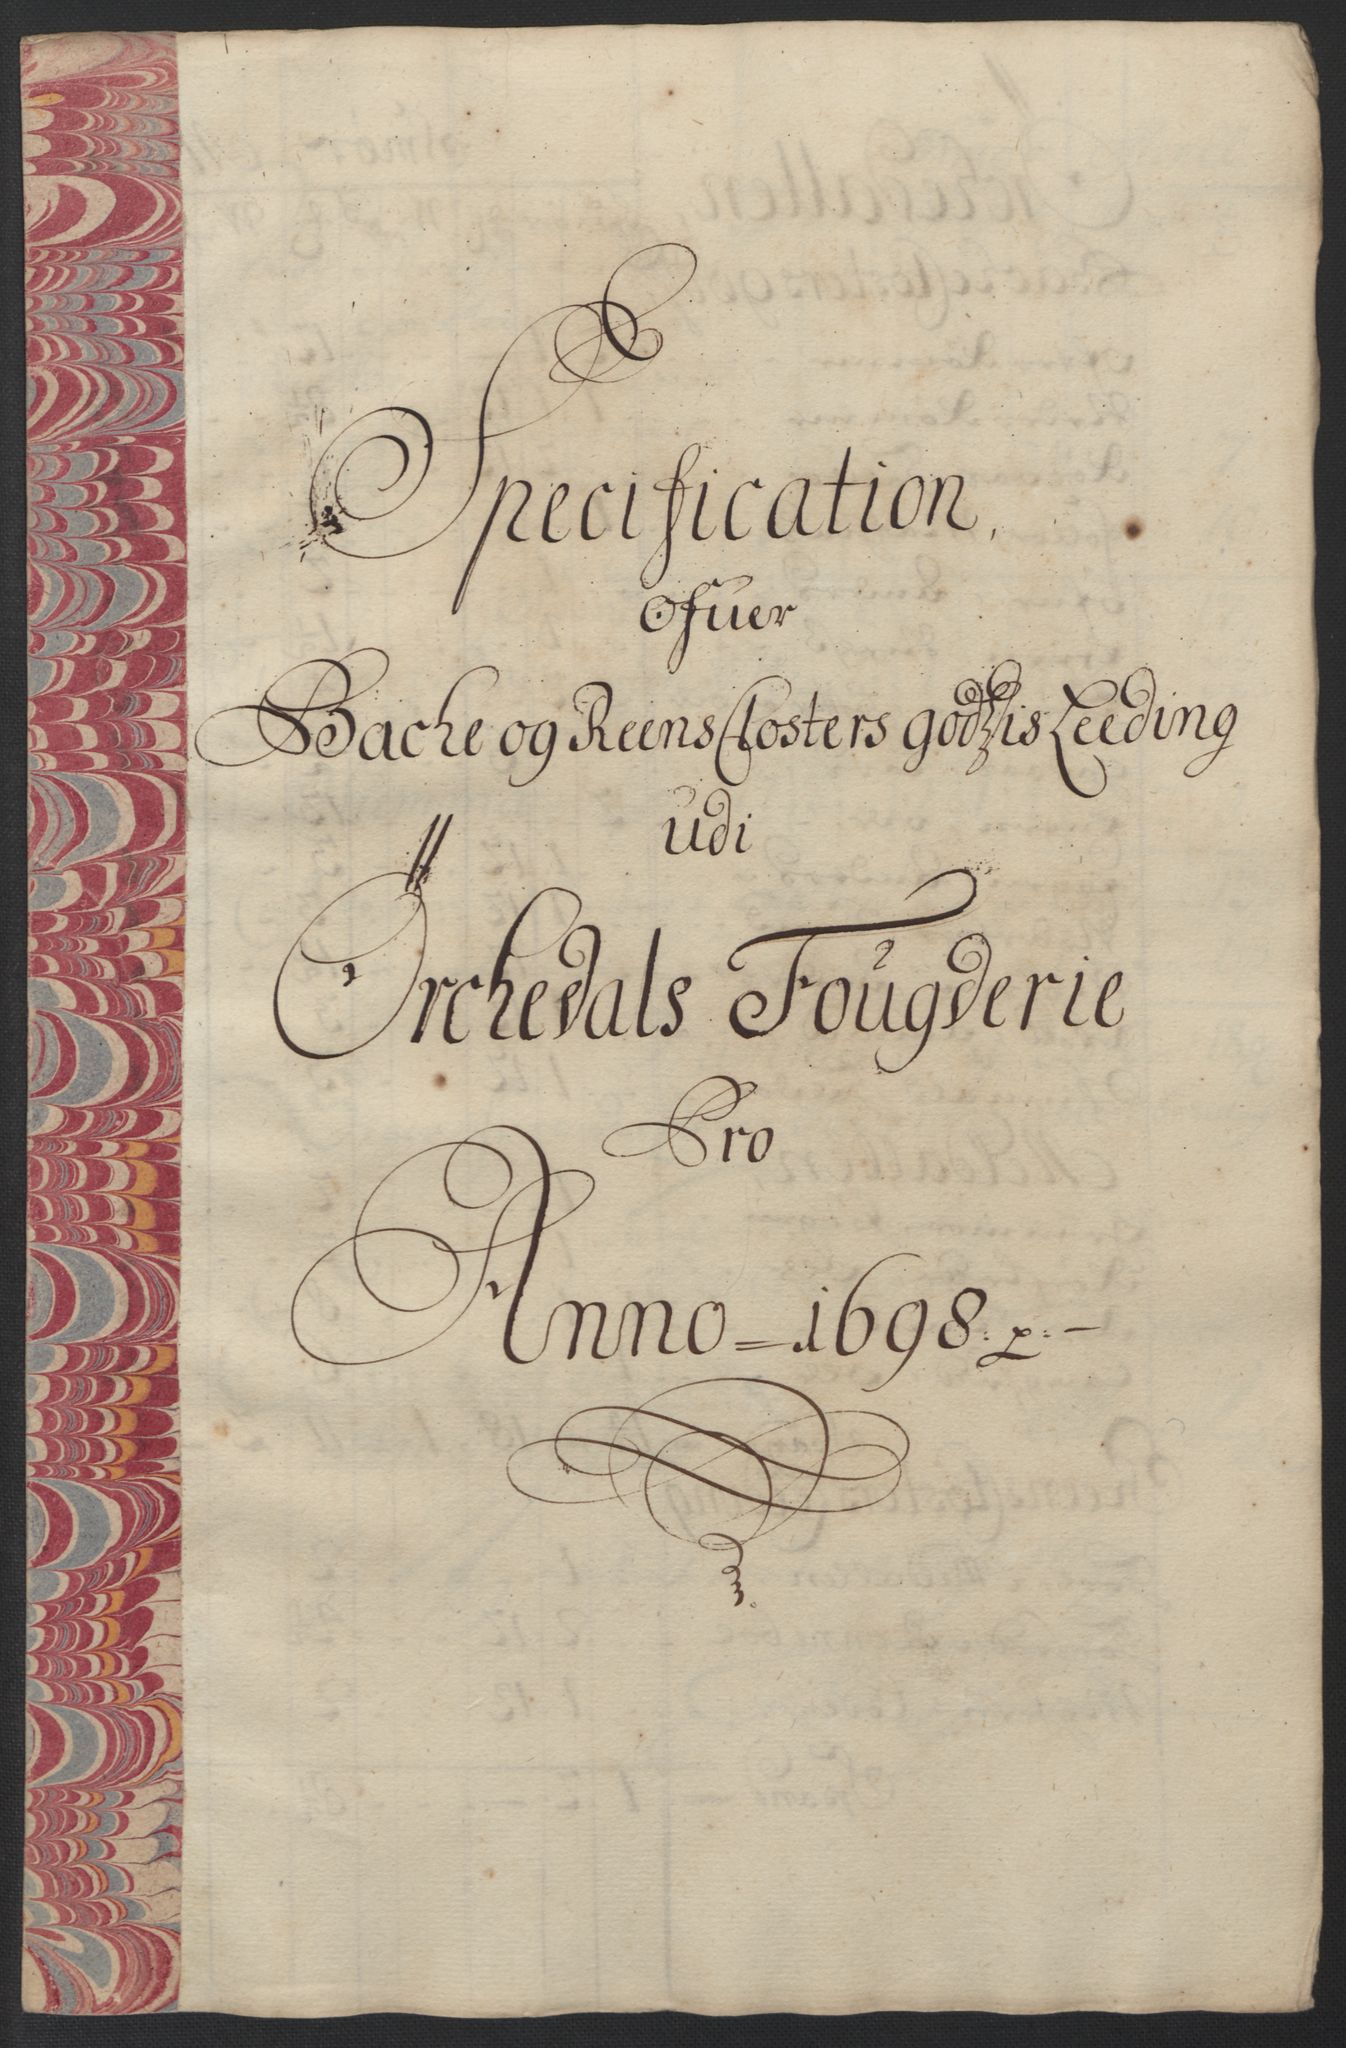 Specification,
ofuer
Bache og Reens Closters godtzis Leeding
udi
Örchedals Fougderie
Pro
Anno = 1698